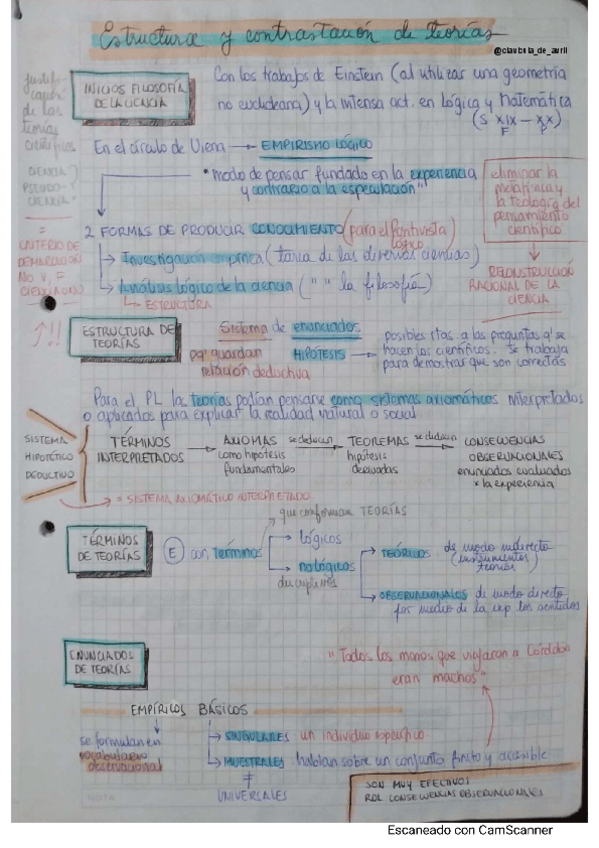 Estructura y contrastación de teorías
@claubula_de_avril
justifi-
cación
de las
teorías
científicas
CIENCIA
PSEUDO-
CIENCIA
=
CRITERIO DE
DEMARCACIÓN
NO V, F
CIENCIA O NO
↑!!
INICIOS FILOSOFÍA
DE LA CIENCIA
Con los trabajos de Einstein (al utilizar una geometría
no euclideana) y la intensa act. en Lógica y Matemática
(S XIX – XX)
F P
En el círculo de Viena → EMPIRISMO LÓGICO
"modo de pensar fundado en la experiencia
y contrario a la especulación"
eliminar la
metafísica y
la teología del
pensamiento
científico
RECONSTRUCCIÓN
RACIONAL DE LA
CIENCIA
2 FORMAS DE PRODUCIR CONOCIMIENTO (para el positivista
lógico)
→ Investigación empírica (tarea de las diversas ciencias)
→ Análisis lógico de la ciencia ( " " la filosofía)
↳ ESTRUCTURA
ESTRUCTURA DE
TEORÍAS
Sistema de enunciados
pq' guardan
relación deductiva
HIPÓTESIS →
posibles rtas. a las preguntas q' se
hacen los científicos. Se trabaja
para demostrar que son correctas
Para el PL las teorías podían pensarse como sistemas axiomáticos interpretados
o aplicados para explicar la realidad natural o social
SISTEMA
HIPOTÉTICO
DEDUCTIVO
TÉRMINOS
INTERPRETADOS
→ AXIOMAS
como hipótesis
fundamentales
se deducen
→ TEOREMAS
hipótesis
derivadas
se deducen
→ CONSECUENCIAS
OBSERVACIONALES
enunciados evaluados
x la experiencia
= SISTEMA AXIOMÁTICO INTERPRETADO
TÉRMINOS
DE TEORÍAS
que conforman TEORÍAS
E con términos
→ lógicos
→ no lógicos
→ TEÓRICOS de modo indirecto
(instrumentos)
teorías
→ OBSERVACIONALES de modo directo
por medio de la exp. los sentidos
ENUNCIADOS
DE TEORÍAS
"Todos los monos que viajaron a Córdoba
eran machos"
EMPÍRICOS BÁSICOS
se formulan en
vocabulario
observacional
→ SINGULARES un individuo específico
→ MUESTRALES hablan sobre un conjunto finito y accesible
≠
UNIVERSALES
SON MUY EFECTIVOS
CONSECUENCIAS OBSERVACIONALES
NOTA
Escaneado con CamScanner